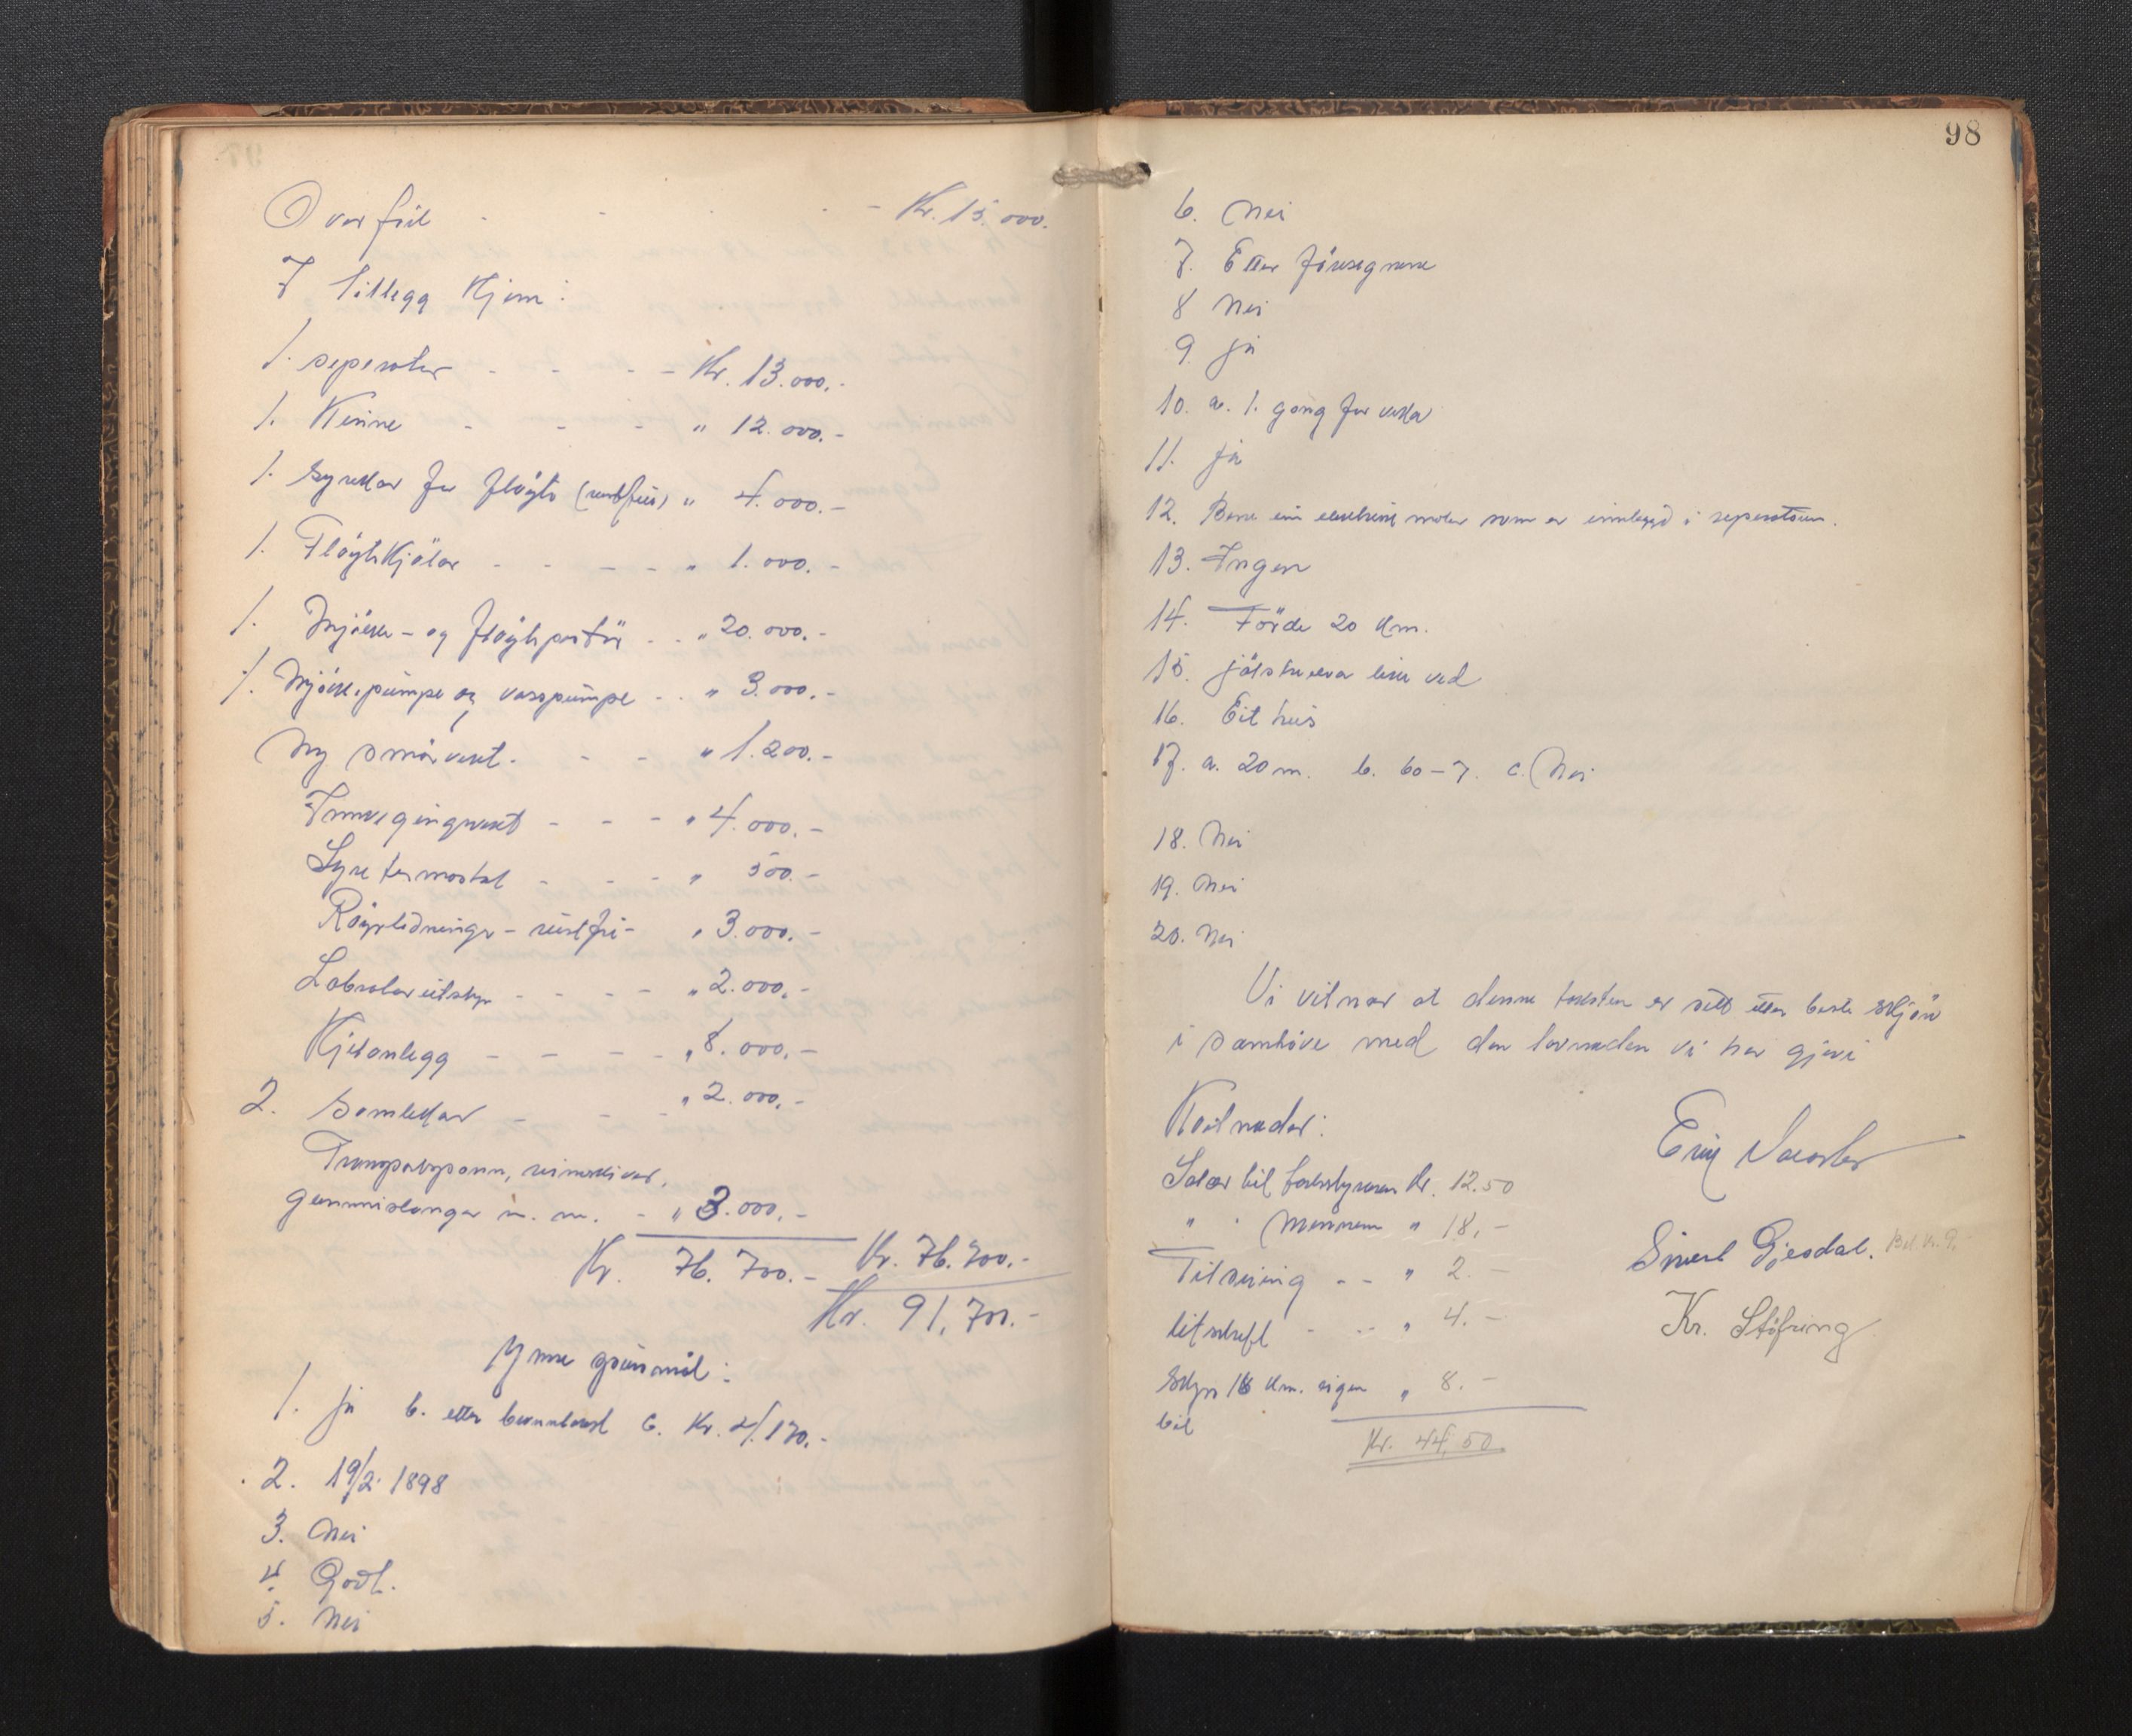 Overført - - - - Kr. 15.000.
I tillegg kjem:
1. seperator - - - - Kr. 13.000.-
1. Kinne - - - " 12.000.-
1. Syrekar for fløyte (rustfri) " 4.000.-
1. Fløytekjølar - - - - " 1.000.-
1. Mjølke- og fløytepastør - - " 20.000.-
1. Mjølkepumpe og vasspumpe - - " 3.000.-
Ny smørvekt. - - " 1.200.-
Innvegingsvekt - - - " 4.000.-
Syretermostat - - - " 500.-
Røyrledninger - rustfri - " 3.000.-
Laboratorieutstyr - - - - " 2.000.-
Kjelanlegg - - - - " 8.000.-
2. Samlekar - - - " 2.000.-
Transportspann, reimskiver,
gummislanger m. m. - " 3.000.-
Kr. 76.700.- Kr. 76.700.-
Kr. 91,700.-
Ymse spursmål:
1. Ja b. etter brannboret c. Kr. 4.170.-
2. 19/2. 1898
3. Nei
4. Godt.
5. Nei
98
6. Nei
7. Etter føresegnene
8 Nei
9. Ja
10. a. 1. gong for veka
11. Ja
12. Berre ein elektrisk motor som er innbygd i seperatoren.
13. Ingen
14. Førde 20 km.
15. Jølstraelva like ved
16. Eit hus
17. a. 20 m. b. 60-7. c. Nei
18. Nei
19. Nei
20. Nei
Vi vitnar at denne taksten er sett etter beste skjøn
i samhøve med den lovnaden vi har gjeve
Kostnader:
Salær til takstyraren Kr. 12.50
" " Mennene " 18.-
Tilseiing - - " 2.-
Utskrift - - - " 4.-
Skyss 16 km. eigen " 8.-
bil
Kr. 44,50
Sivert Gjesdal.
Kr. Støfring